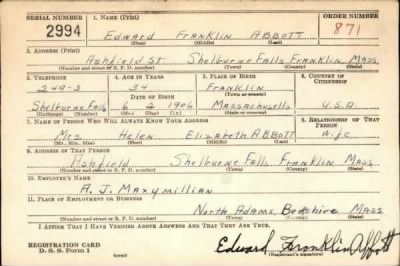 SERIAL NUMBER 1. NAME (Print) ORDER NUMBER
2994 Edward Franklin ABBOTT 871
(First) (Middle) (Last)
2. ADDRESS (Print)
Ashfield St. Shelburne Falls Franklin Mass.
(Number and street or R. F. D. number) (Town) (County) (State)
3. TELEPHONE 4. AGE IN YEARS 5. PLACE OF BIRTH 6. COUNTRY OF CITIZENSHIP
249-3 34 Franklin
DATE OF BIRTH (Town or county)
Shelburne Falls 6 2 1906 Massachusetts U.S.A.
(Exchange) (Number) (Mo.) (Day) (Yr.) (State or country)
7. NAME OF PERSON WHO WILL ALWAYS KNOW YOUR ADDRESS 8. RELATIONSHIP OF THAT PERSON
Mrs. Helen Elizabeth ABBOTT Wife
(Mr., Mrs., Miss) (First) (Middle) (Last)
9. ADDRESS OF THAT PERSON
Ashfield Shelburne Falls Franklin Mass
(Number and street or R. F. D. number) (Town) (County) (State)
10. EMPLOYER'S NAME
A. J. Maxymillian
11. PLACE OF EMPLOYMENT OR BUSINESS
North Adams, Berkshire Mass
(Number and street or R. F. D. number) (Town) (County) (State)
I AFFIRM THAT I HAVE VERIFIED ABOVE ANSWERS AND THAT THEY ARE TRUE.
REGISTRATION CARD Edward Franklin Abbott
D. S. S. Form 1 (over) (Registrant's signature)